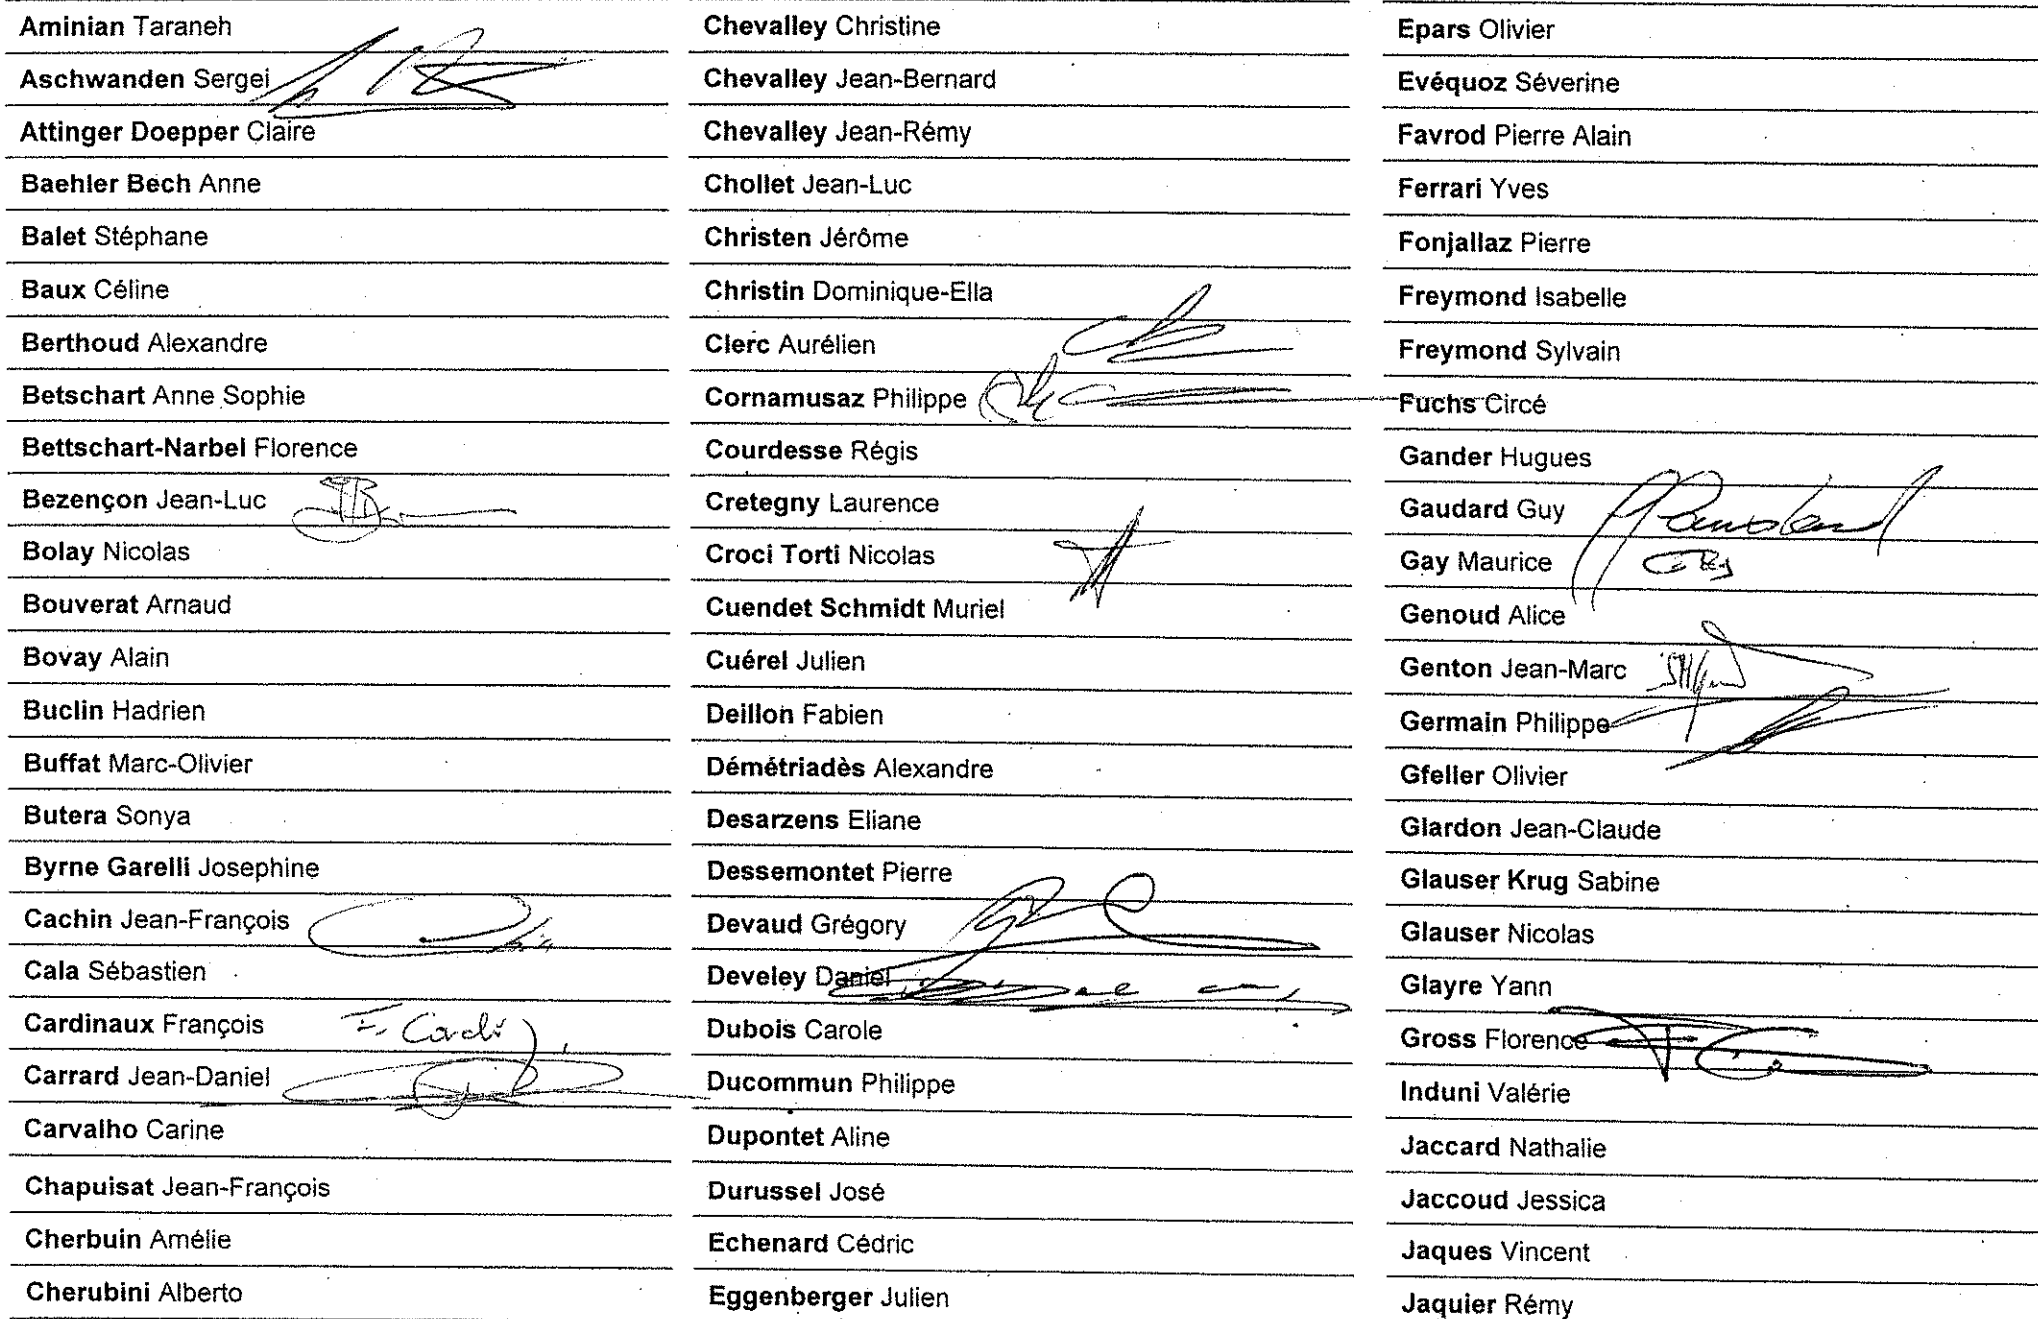 Aminian Taraneh
Aschwanden Sergei
Attinger Doepper Claire
Baehler Bech Anne
Balet Stéphane
Baux Céline
Berthoud Alexandre
Betschart Anne Sophie
Bettschart-Narbel Florence
Bezençon Jean-Luc
Bolay Nicolas
Bouverat Arnaud
Bovay Alain
Buclin Hadrien
Buffat Marc-Olivier
Butera Sonya
Byrne Garelli Josephine
Cachin Jean-François
Cala Sébastien
Cardinaux François
Carrard Jean-Daniel
Carvalho Carine
Chapuisat Jean-François
Cherbuin Amélie
Cherubini Alberto
Chevalley Christine
Chevalley Jean-Bernard
Chevalley Jean-Rémy
Chollet Jean-Luc
Christen Jérôme
Christin Dominique-Ella
Clerc Aurélien
Cornamusaz Philippe
Courdesse Régis
Cretegny Laurence
Croci Torti Nicolas
Cuendet Schmidt Muriel
Cuérel Julien
Deillon Fabien
Démétriadès Alexandre
Desarzens Eliane
Dessemontet Pierre
Devaud Grégory
Develey Daniel
Dubois Carole
Ducommun Philippe
Dupontet Aline
Durussel José
Echenard Cédric
Eggenberger Julien
Epars Olivier
Evéquoz Séverine
Favrod Pierre Alain
Ferrari Yves
Fonjallaz Pierre
Freymond Isabelle
Freymond Sylvain
Fuchs Circé
Gander Hugues
Gaudard Guy
Gay Maurice
Genoud Alice
Genton Jean-Marc
Germain Philippe
Gfeller Olivier
Glardon Jean-Claude
Glauser Krug Sabine
Glauser Nicolas
Glayre Yann
Gross Florence
Induni Valérie
Jaccard Nathalie
Jaccoud Jessica
Jaques Vincent
Jaquier Rémy